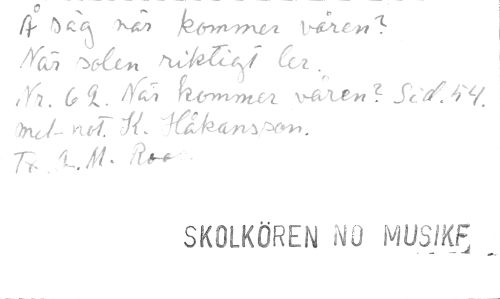 Å säg när kommer våren?
När solen riktigt ler.
Nr. 62. När kommer våren? Sid. 54.
mel-not. K. Håkansson.
Tx. A. M. Roos.
SKOLKÖREN NO MUSIKE